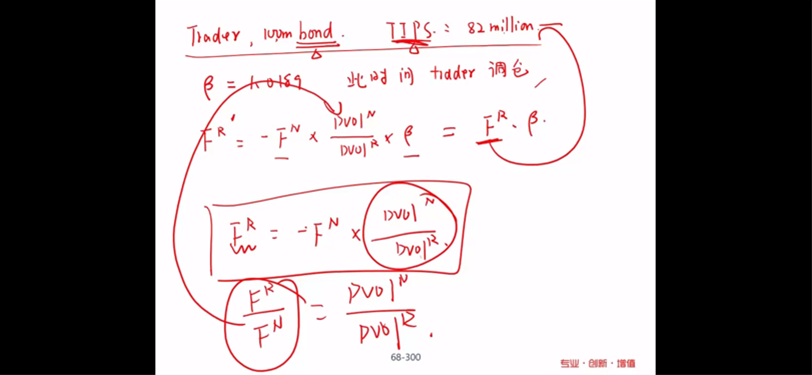 Trader, 100m bond. TIPS. = 82 million
β = 1.0189 此时问 trader 调仓
F^R' = - F^N × DV01^N / DV01^R × β = F^R · β.
F^R = - F^N × DV01^N / DV01^R.
F^R / F^N = DV01^N / DV01^R.
68-300
专业·创新·增值